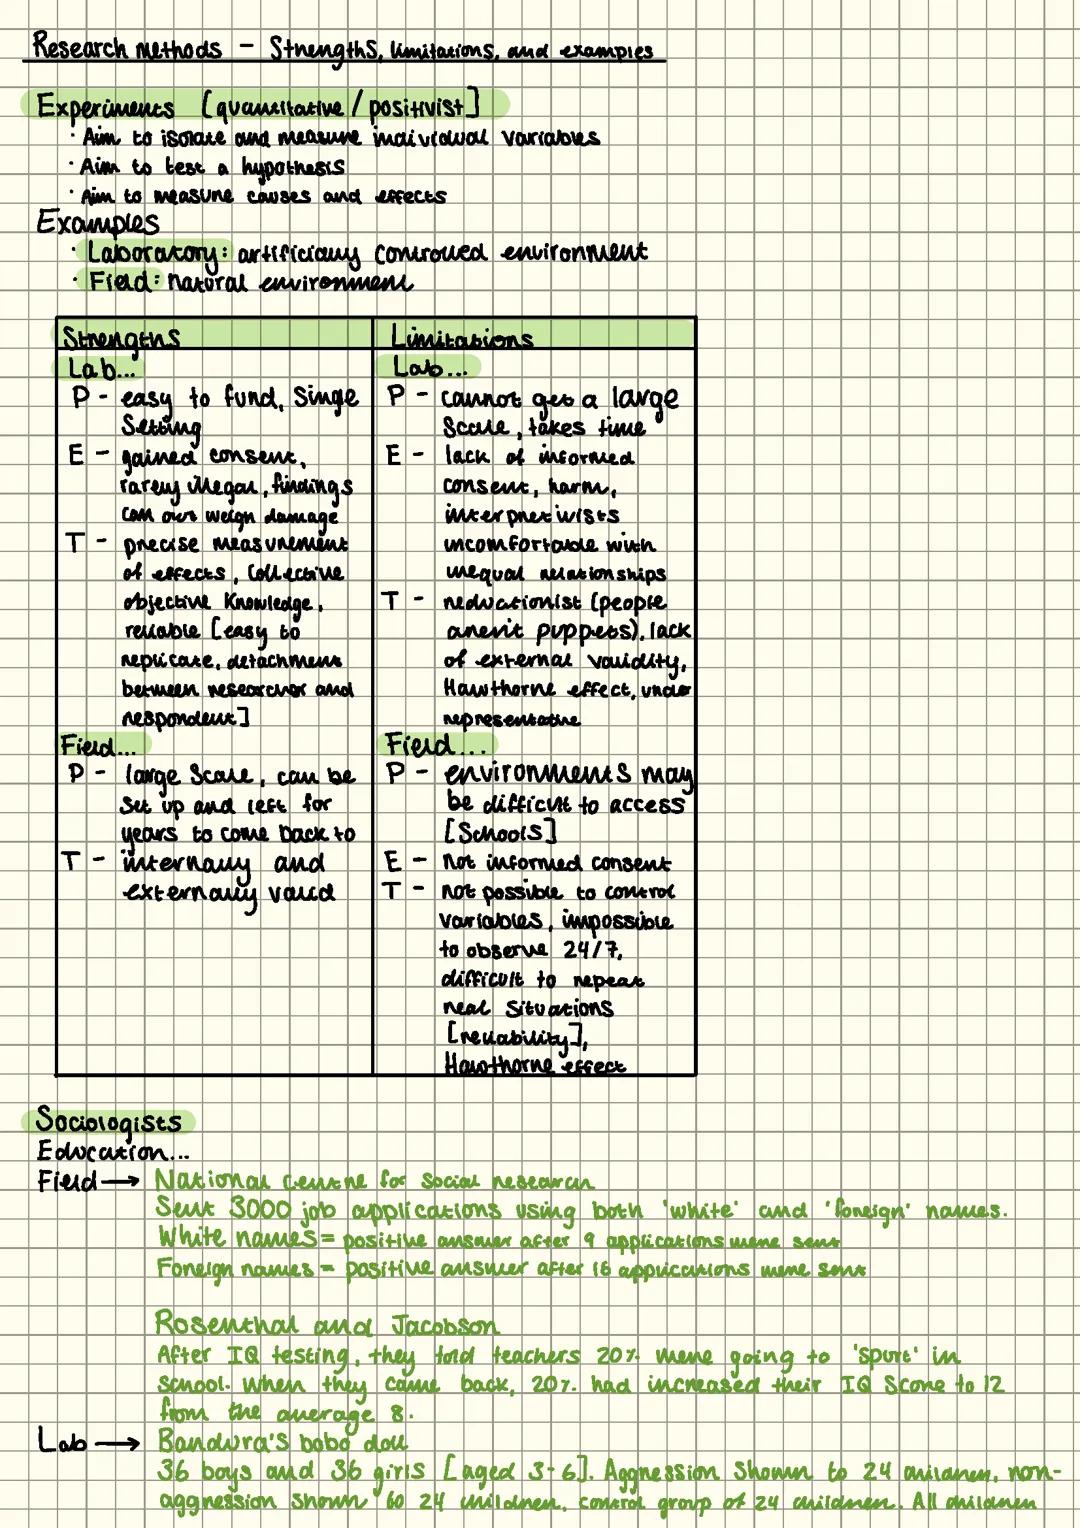 Research methods - Strengths, limitations, and examples
Experiments [quantitative / positivist]
· Aim to isolate and measure individual variables
· Aim to test a hypothesis
· Aim to measure causes and effects
Examples
· Laboratory: artificially controlled environment
· Field: natural environment
Strengths
Lab...
P - easy to fund, Singe
Setting
E - gained consent,
rarely illegal, findings
can out weigh damage
T - precise measurement
of effects, Collective
objective Knowledge,
reliable [easy to
replicate, detachment
between researcher and
respondent]
Field...
P - large Scale, can be
Set up and left for
years to come back to
T - internally and
externally valid
Limitations
Lab...
P - cannot get a large
Scale, takes time
E - lack of informed
consent, harm,
interpretivists
uncomfortable with
unequal relationships
T - reductionist (people
arent puppets), lack
of external validity,
Hawthorne effect, under
representative
Field...
P - environments may
be difficult to access
[Schools]
E - Not informed consent
T - not possible to control
variables, impossible
to observe 24/7,
difficult to repeat
real Situations
[reliability],
Hawthorne effect
Sociologists
Education...
Field → National centre for Social research
Sent 3000 job applications using both 'white' and 'foreign' names.
White names = positive answer after 9 applications were sent
Foreign names = positive answer after 16 applications were sent
Rosenthal and Jacobson
After IQ testing, they told teachers 20% were going to 'spurt' in
School. When they came back, 20%. had increased their IQ Score to 12
from the average 8.
Lab → Bandura's bobo doll
36 boys and 36 girls [aged 3-6]. Aggression Shown to 24 children, non-
aggression shown to 24 children, control group of 24 children. All children